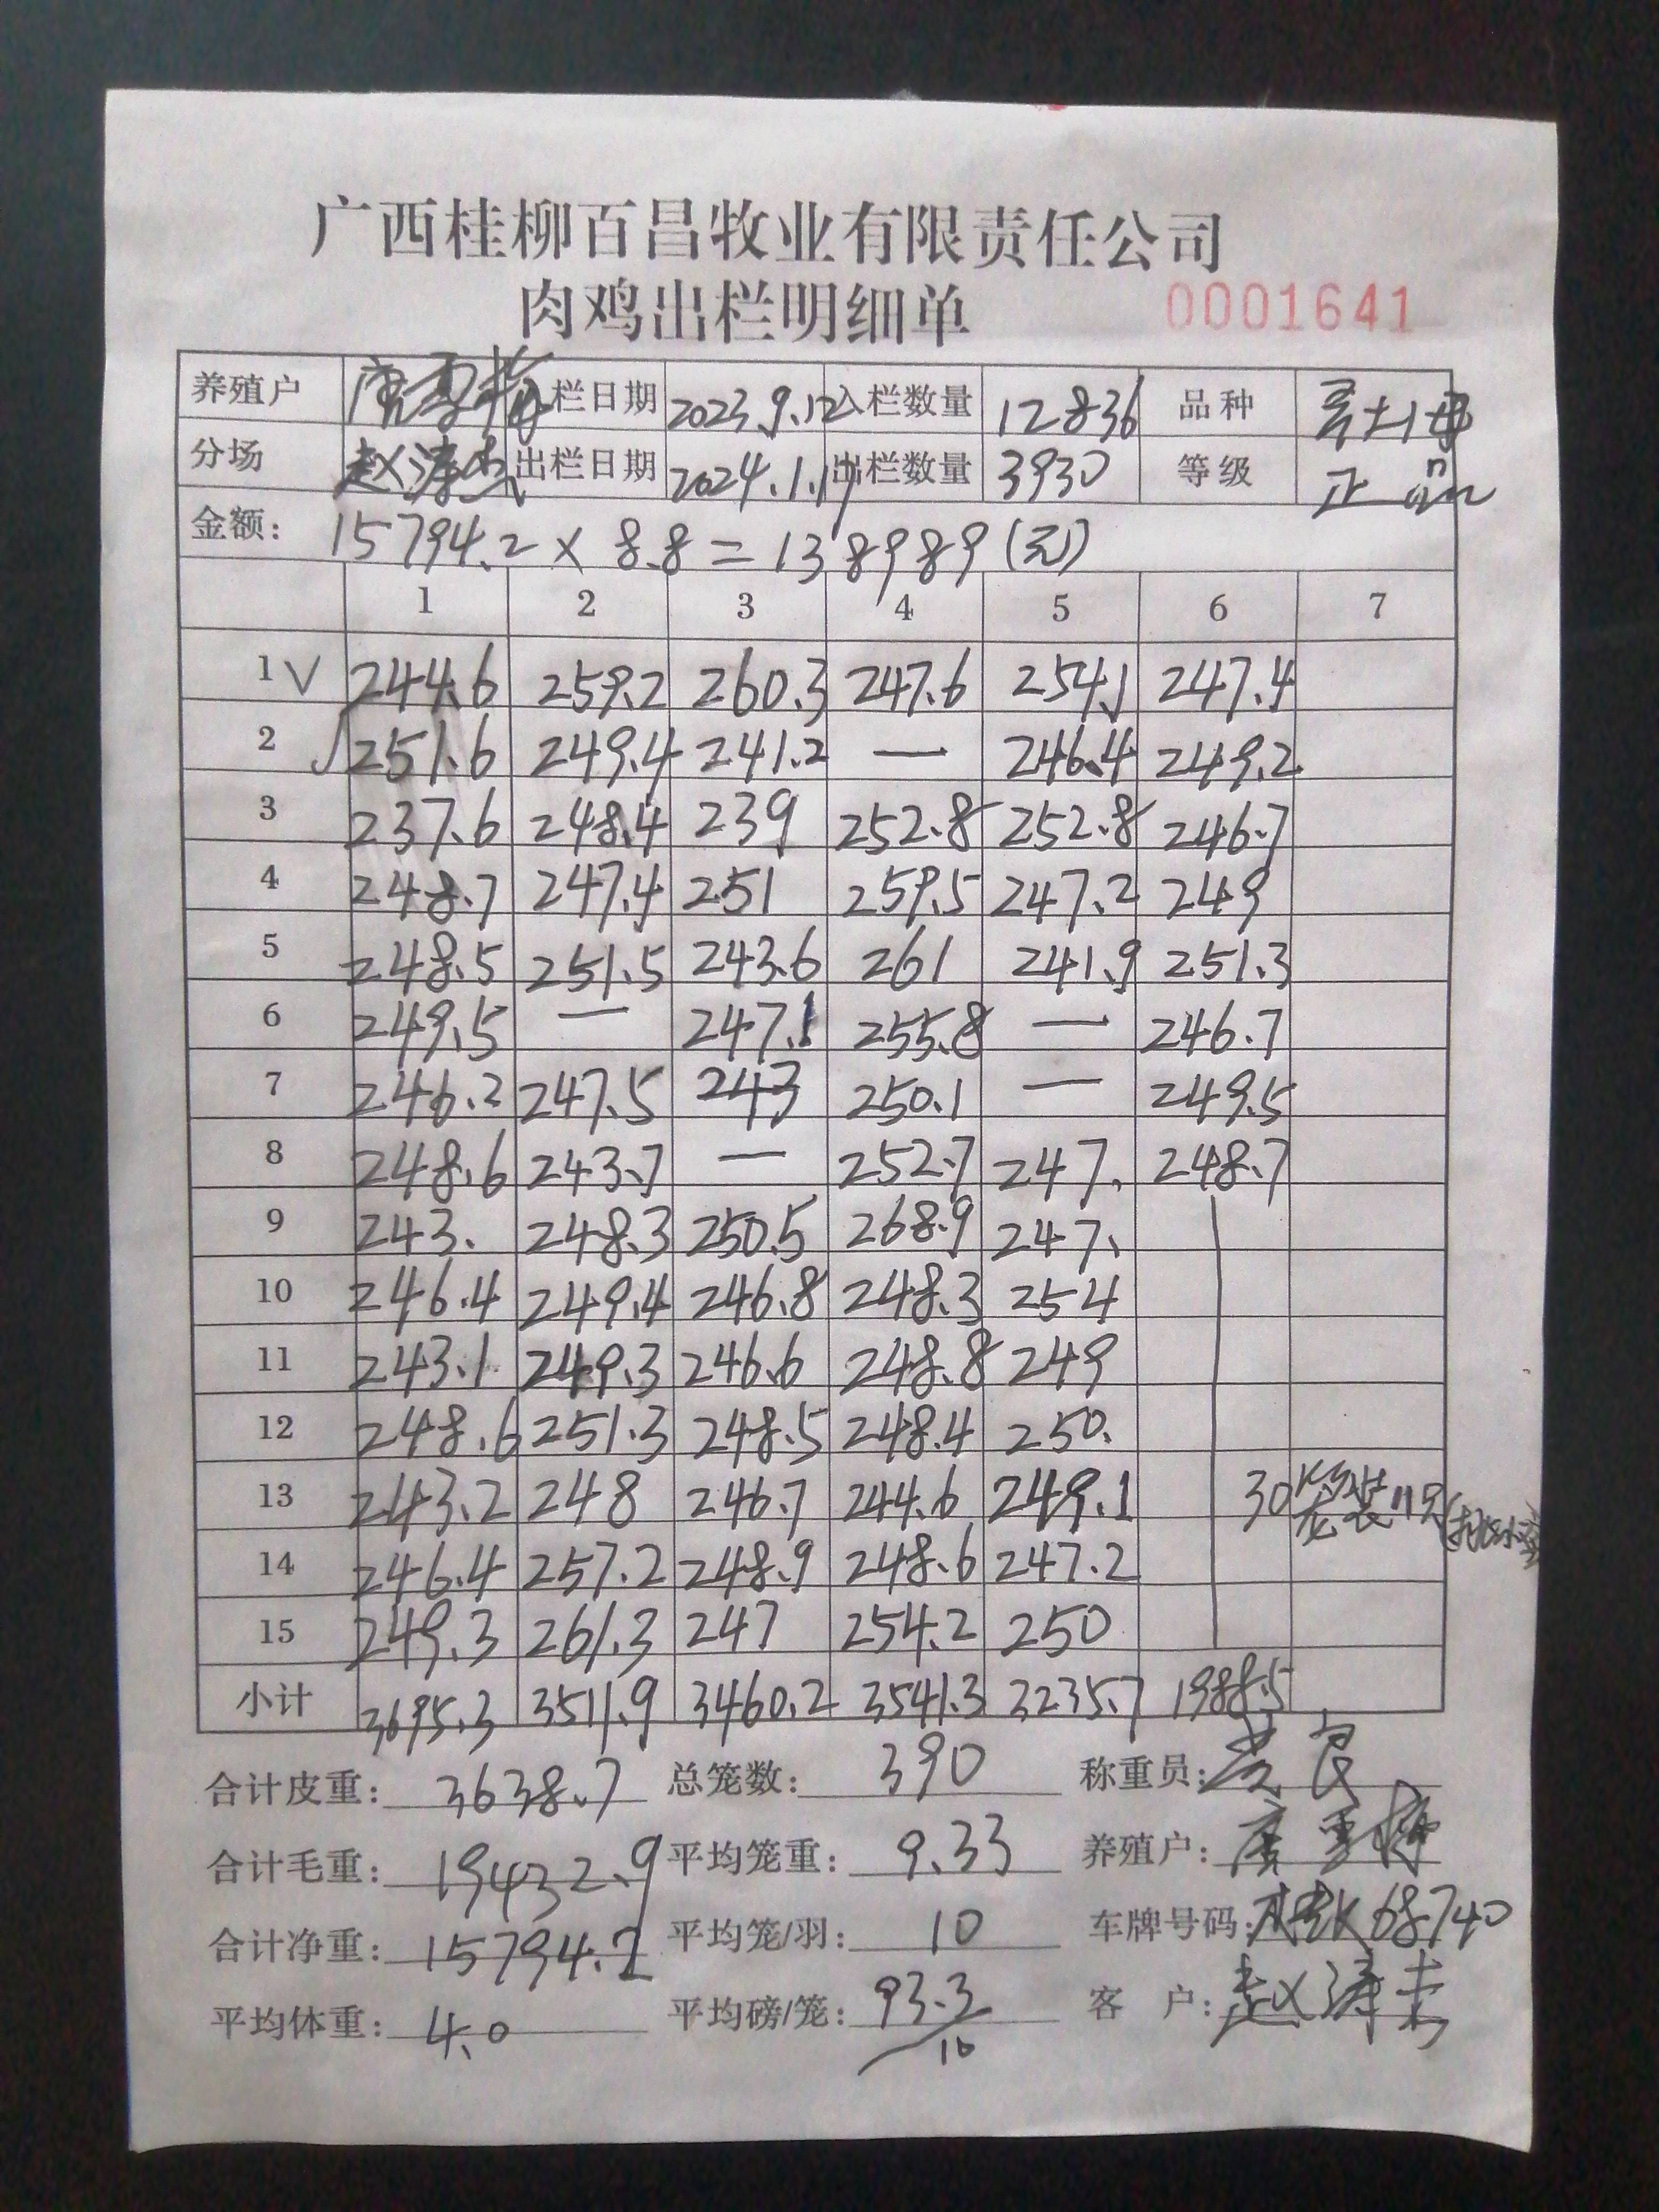 广西桂柳百昌牧业有限责任公司
肉鸡出栏明细单 0001641
养殖户 唐雪梅 入栏日期 2023.9.12 入栏数量 12836 品种 土母
分场 赵涛 出栏日期 2024.1.17 出栏数量 3930 等级 正品
金额: 15794.2 × 8.8 = 138989 (元)
1 2 3 4 5 6 7
1 √ 244.6 259.2 260.3 247.6 254.1 247.4
2 √ 251.6 249.4 241.2 — 246.4 249.2
3 237.6 248.4 239 252.8 252.8 246.7
4 248.7 247.4 251 259.5 247.2 249
5 248.5 251.5 243.6 261 241.9 251.3
6 249.5 — 247.1 255.8 — 246.7
7 246.2 247.5 243 250.1 — 249.5
8 248.6 243.7 — 252.7 247. 248.7
9 243. 248.3 250.5 268.9 247.
10 246.4 249.4 246.8 248.3 254
11 243.1 249.3 246.6 248.8 249
12 248.6 251.3 248.5 248.4 250.
13 243.2 248 246.7 244.6 249.1 30笼装11只
14 246.4 257.2 248.9 248.6 247.2
15 249.3 261.3 247 254.2 250
小计 3695.3 3511.9 3460.2 3541.3 3235.7 1988.5
合计皮重: 3638.7 总笼数: 390 称重员:
合计毛重: 19432.9 平均笼重: 9.33 养殖户: 唐雪梅
合计净重: 15794.2 平均笼/羽: 10 车牌号码: 桂K68740
平均体重: 4.0 平均磅/笼: 93.3 客 户: 赵涛
10